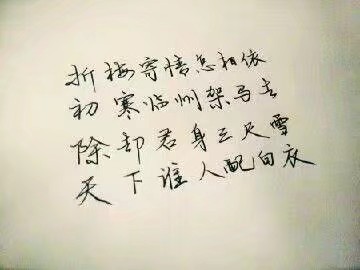 折梅寄情怎相依
初寒临州架马去
除却君身三尺雪
天下谁人配白衣